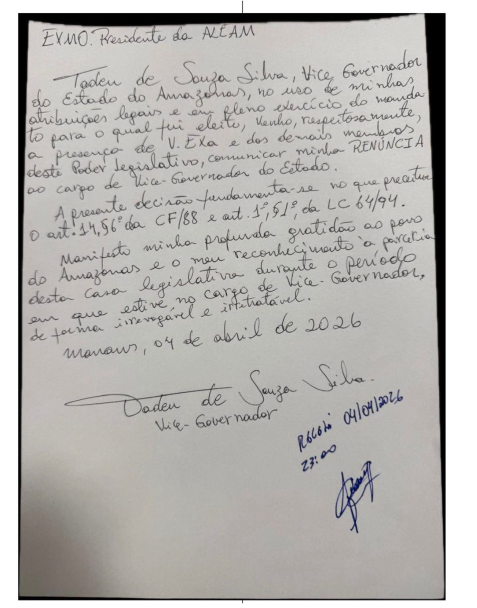 EXMO. Presidente da ALEAM
Tadeu de Souza Silva, Vice Governador
do Estado do Amazonas, no uso de minhas
atribuições legais e em pleno exercício do manda
to para o qual fui eleito, venho, respeitosamente,
a presença de V. EXa e dos demais membros
deste Poder Legislativo, comunicar minha RENÚNCIA
ao cargo de Vice-Governador do Estado.
A presente decisão fundamenta-se no que preceitua
o art. 14, §6º da CF/88 e art. 1º, §1º, da LC 64/94.
Manifesto minha profunda gratidão ao povo
do Amazonas e o meu reconhecimento à parceria
desta casa legislativa durante o período
em que estive no cargo de Vice-Governador,
de forma irrevogável e irretratável.
Manaus, 04 de abril de 2026
Tadeu de Souza Silva.
Vice-Governador
Recebi 04/04/2026
23:00